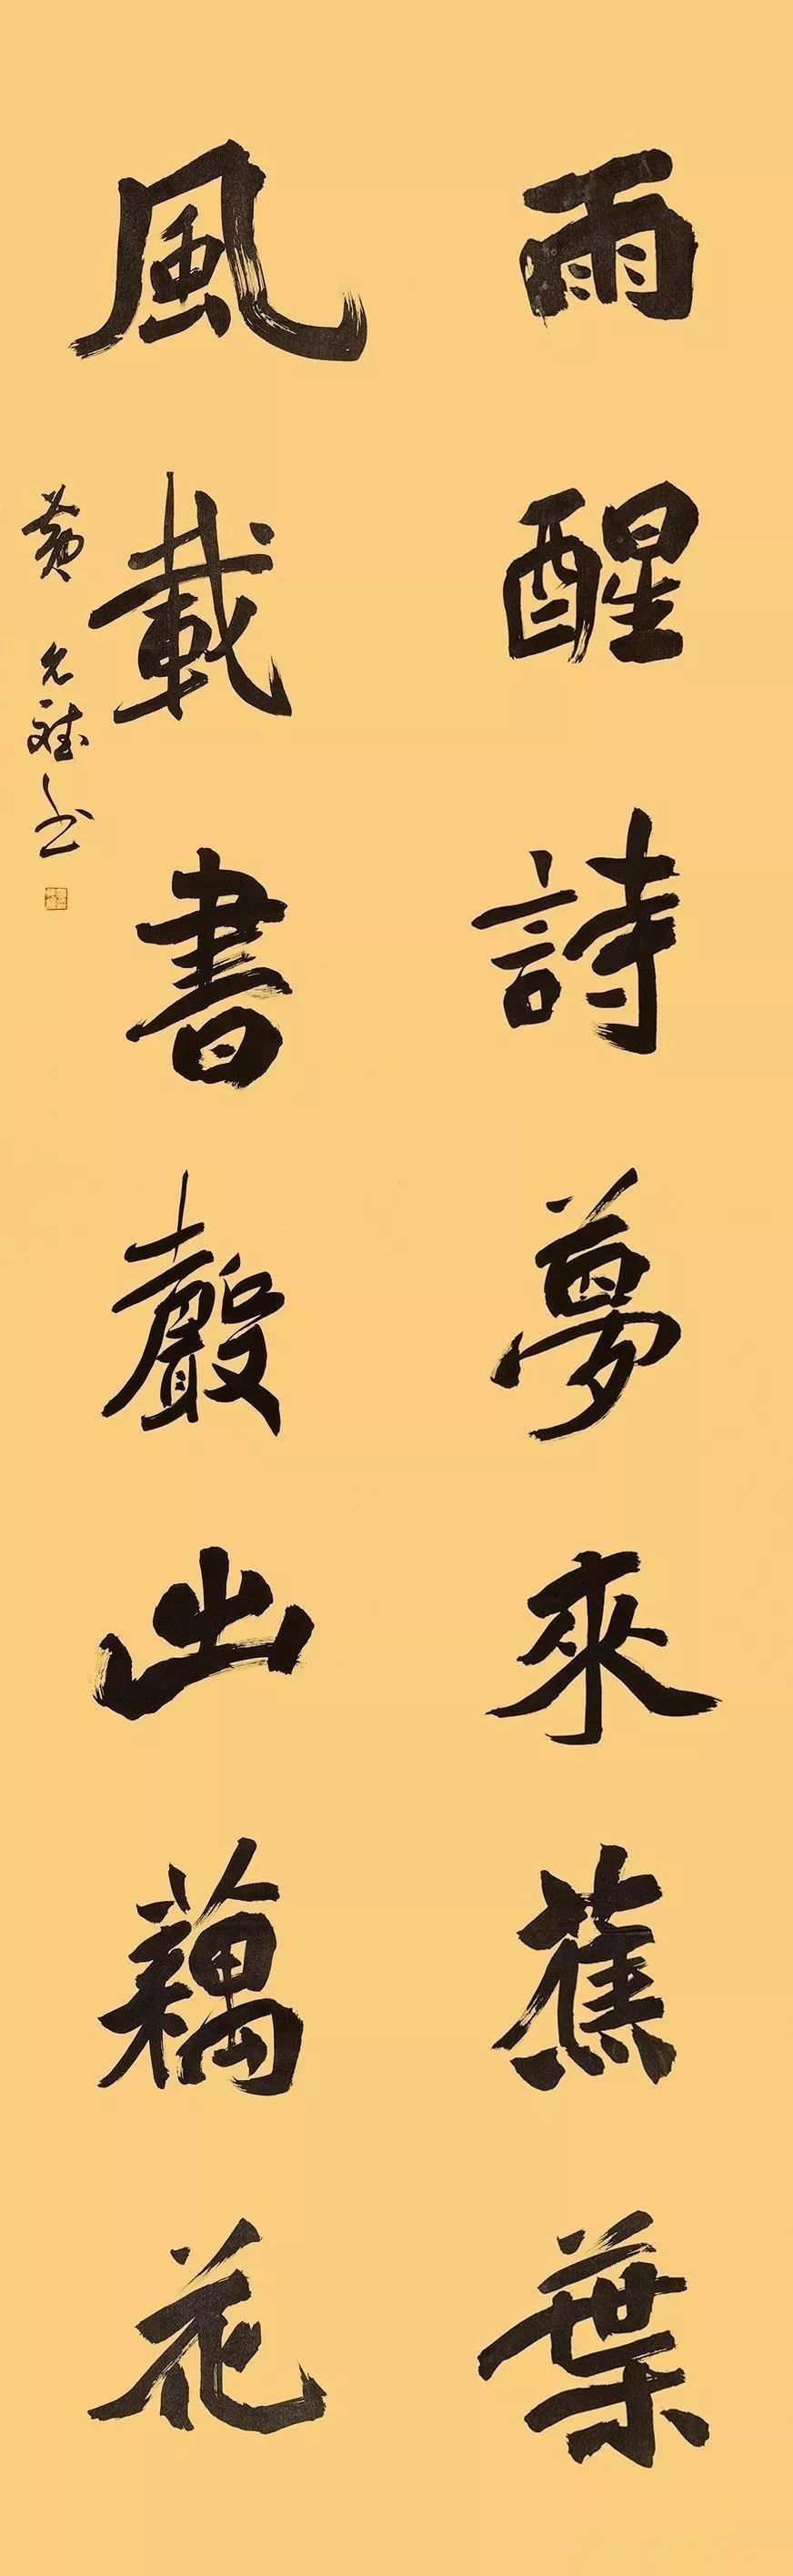 雨醒詩夢來蕉葉
風載書聲出藕花
黄